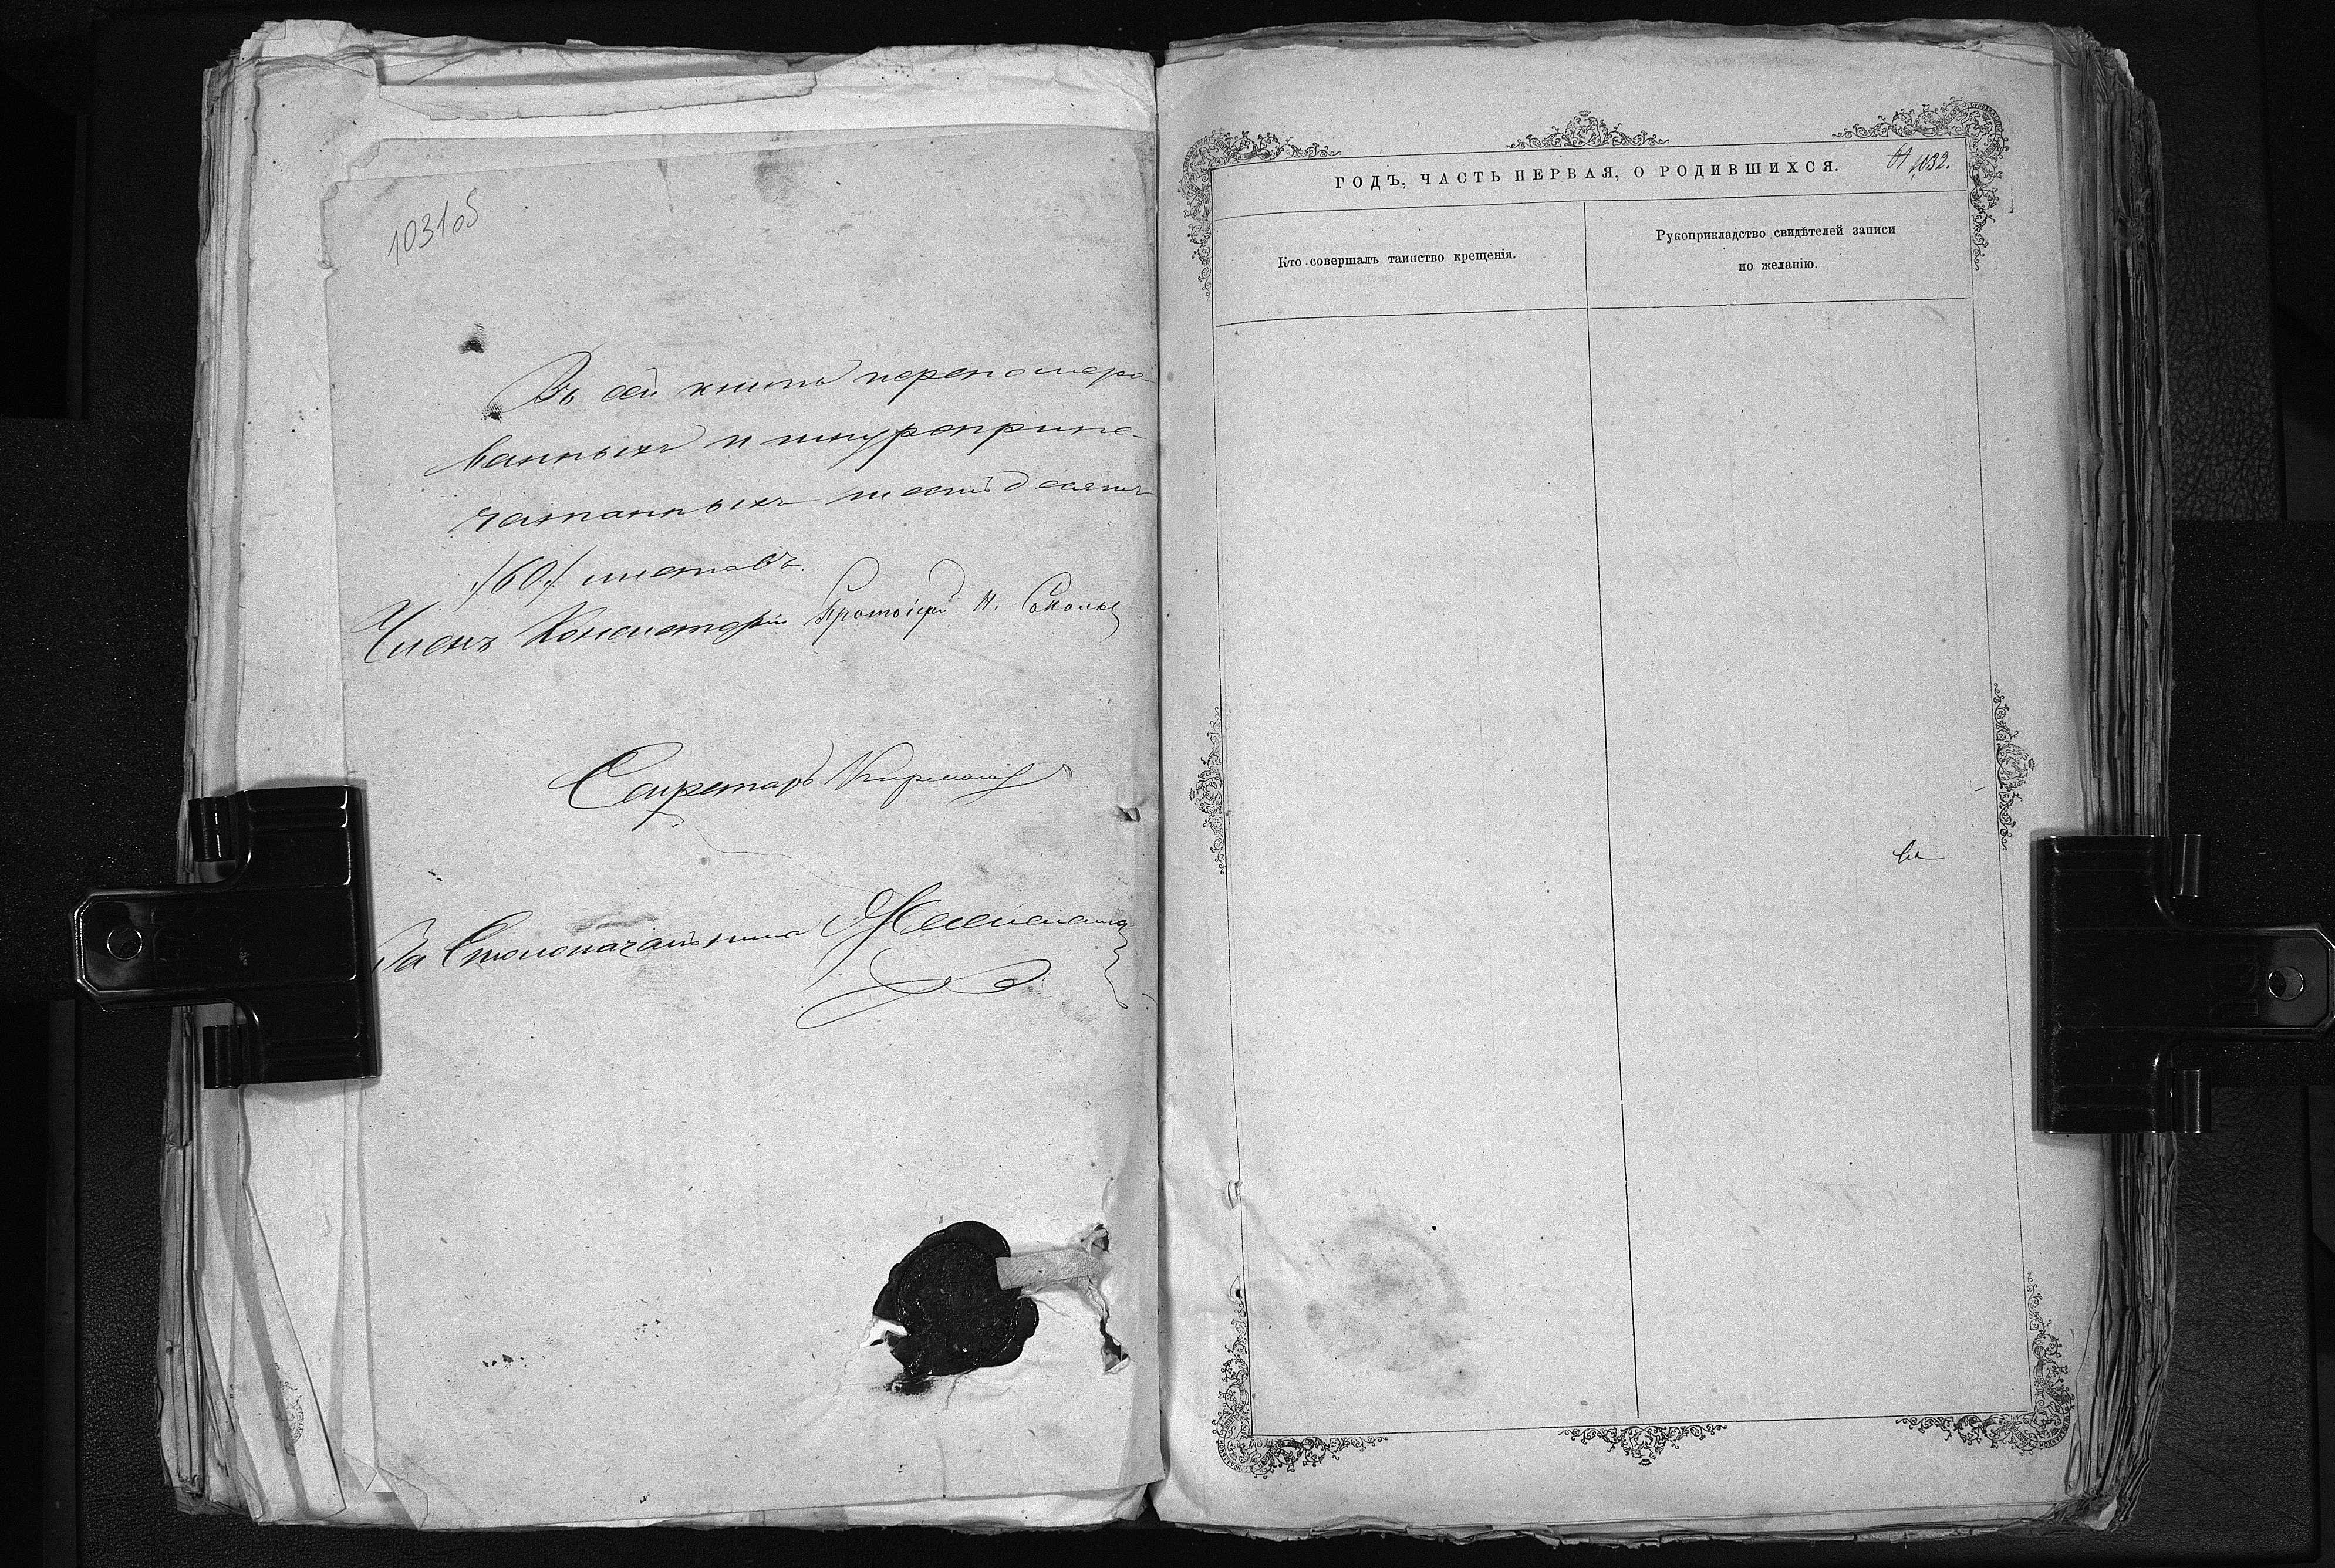 1031об
Въ сей книгѣ перенумеро-
ванныхъ и шнуроприпе-
чатанныхъ шестьдесятъ
/60/ листовъ.
Членъ Консисторіи Протоіерей Н. Соколов
Секретарь
За Столоначальника
ГОДЪ, ЧАСТЬ ПЕРВАЯ, О РОДИВШИХСЯ.
61 1032.
Кто совершалъ таинство крещенія.
Рукоприкладство свидѣтелей записи
по желанію.